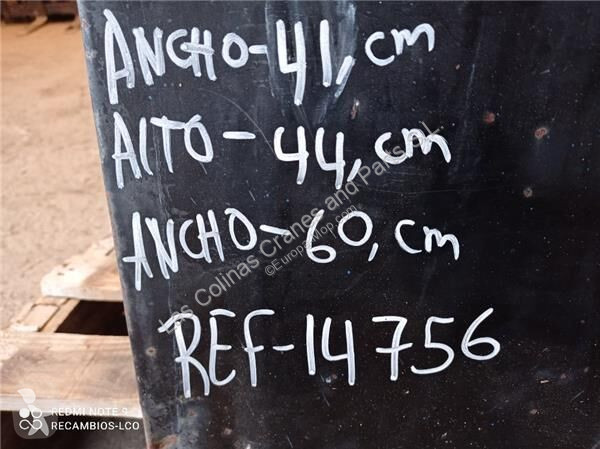 ANCHO-41,cm
ALTO-44,cm
ANCHO-60,cm
REF-14756
Las Colinas Cranes and Parts SL
©Europa-Mop.com
REDMI NOTE 9
RECAMBIOS-LCO